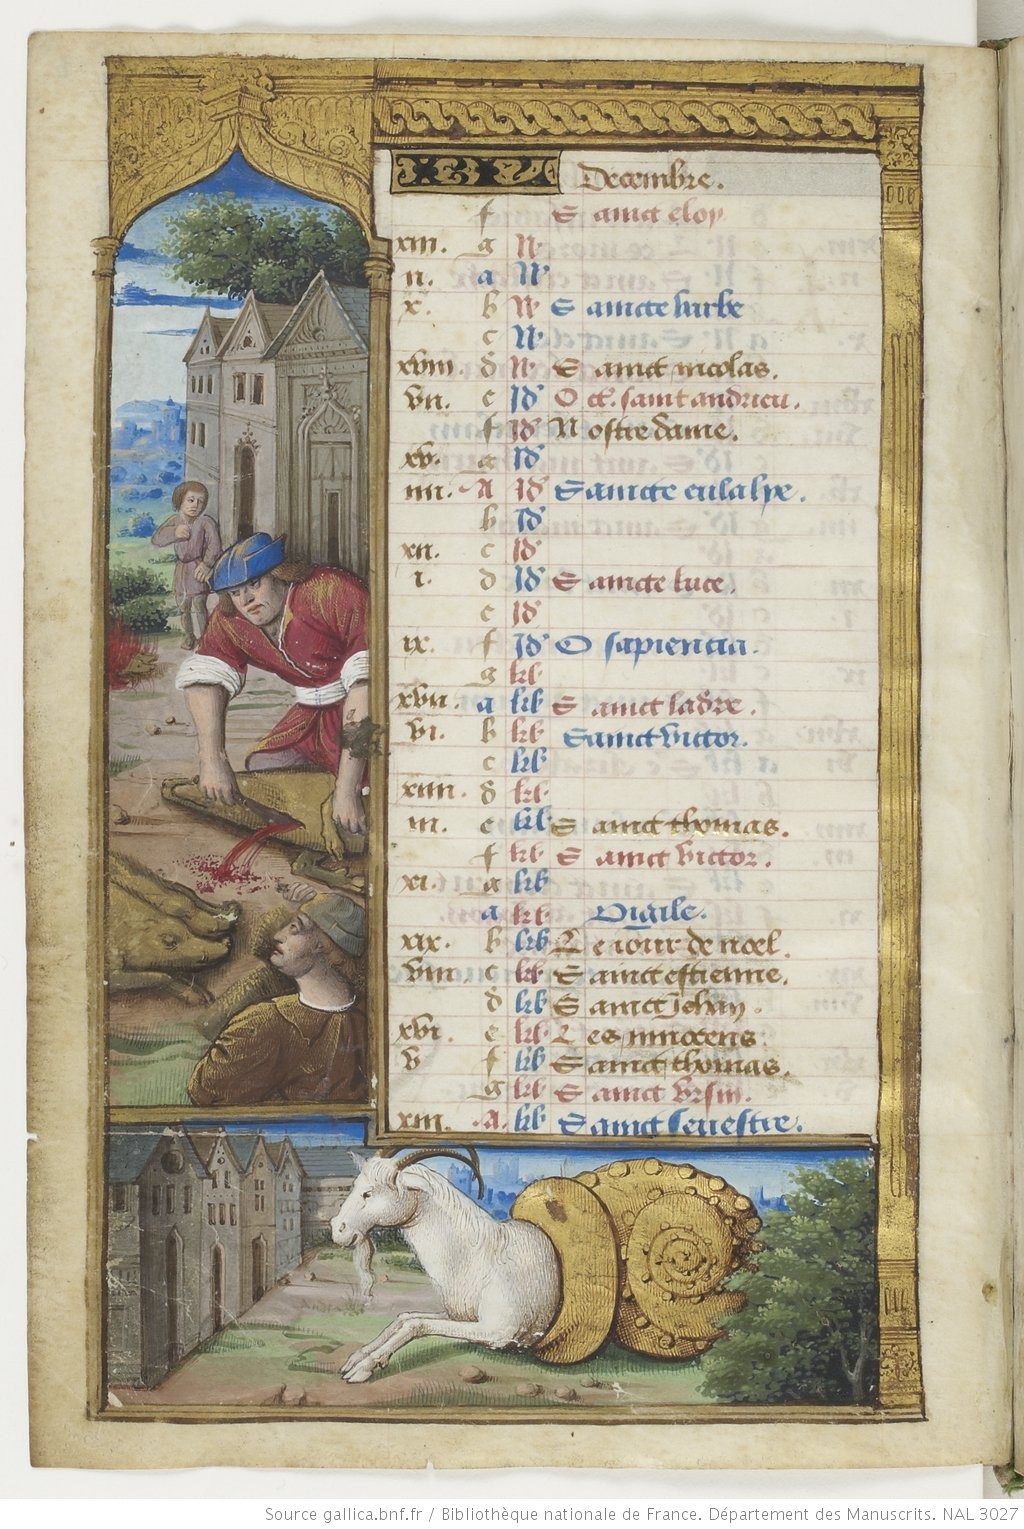 KL Decembre.
f Sainct eloy
xiii. g N
ii. a N
x. b N Saincte barbe
c N
xviii. d N Sainct nicolas.
vii. e Id Oct. saint andrieu.
f Id Nostre dame.
xv. g Id
iiii. A Id Saincte eulalye.
b Id
xii. c Id
i. d Id Saincte luce.
e Id
ix. f Id O sapiencia.
g kl
xvii. a kl Sainct ladre.
vi. b kl Sainct victor.
c kl
xiiii. d kl
iii. e kl Sainct thomas.
f kl Sainct victor.
xi. g kl
a kl Vigile.
xix. b kl Le iour de noel.
viii c kl Sainct estienne.
d kl Sainct Jehan.
xvi. e kl Les innocens
v f kl Sainct thomas.
g kl Sainct vrsin.
xiii. A. kl Sainct seuestre.
Source gallica.bnf.fr / Bibliothèque nationale de France. Département des Manuscrits. NAL 3027